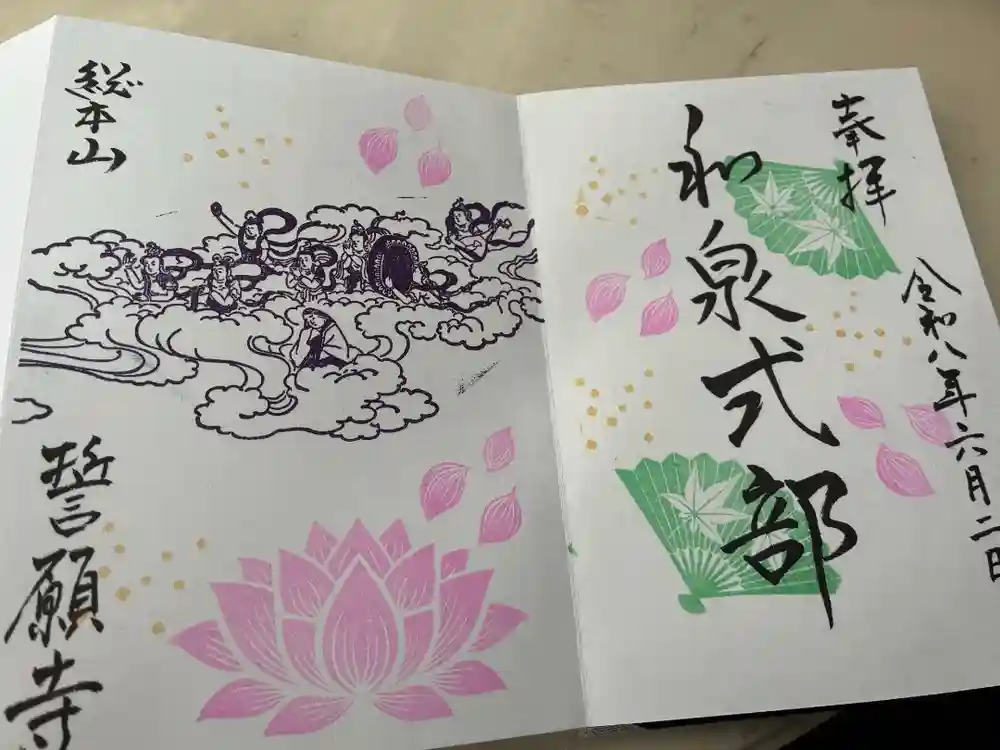 奉拝
令和八年六月二日
和泉式部
総本山
誓願寺